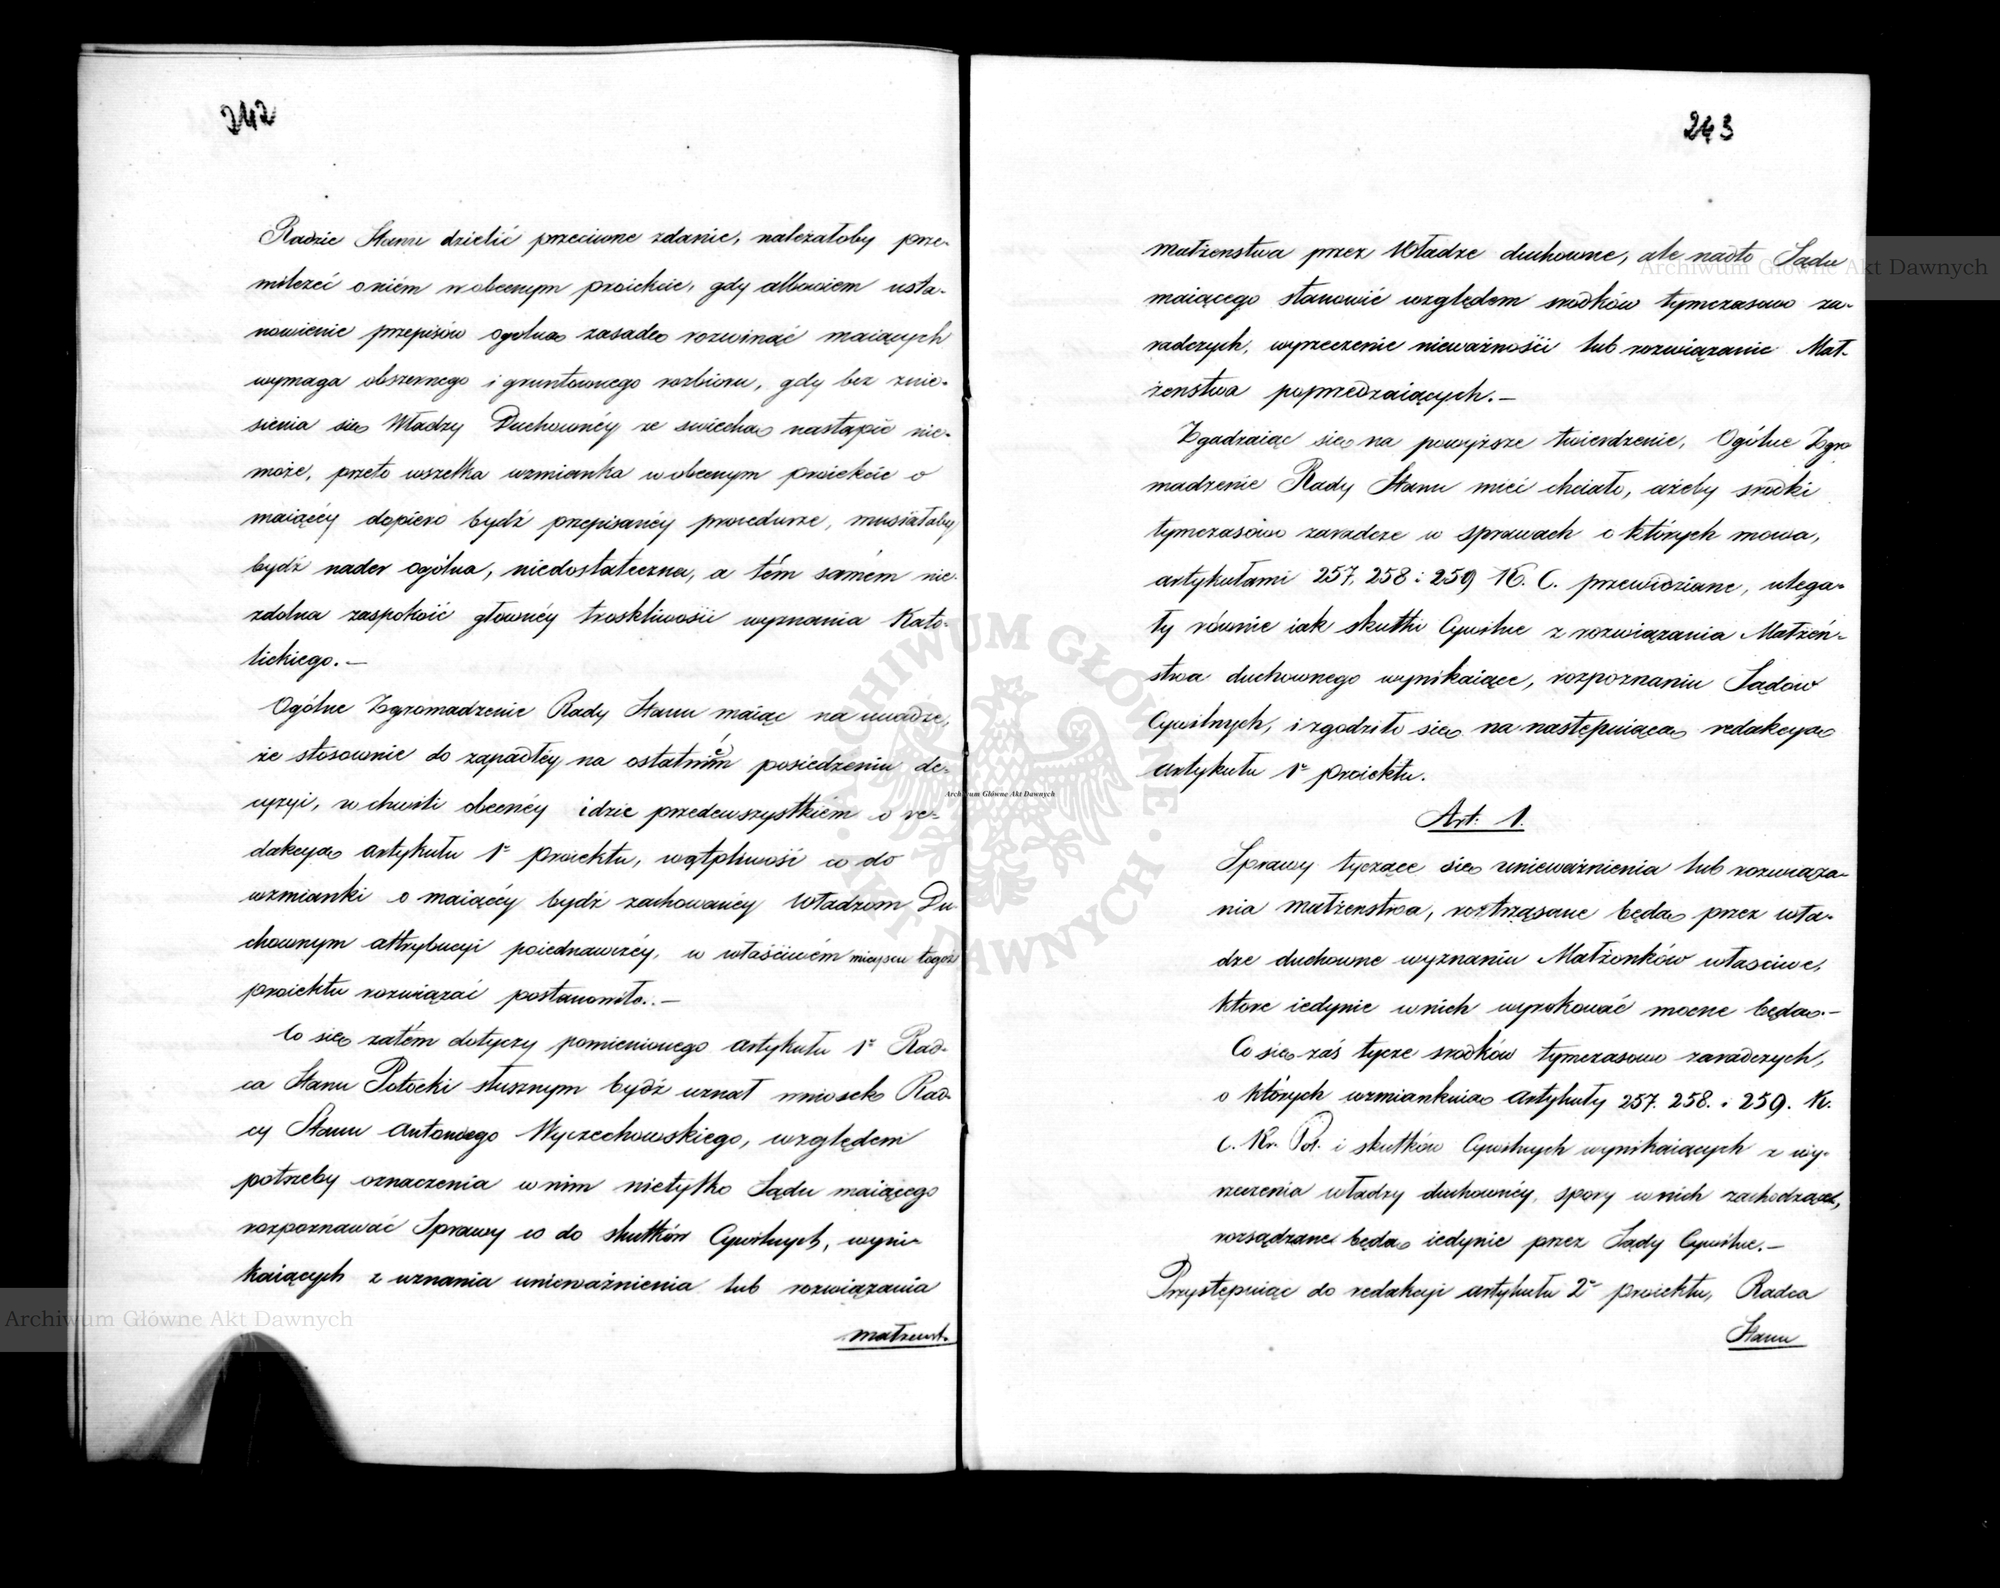 242
Radzie Stanu dzielić przeciwne zdanie, należałoby prze-
milczeć o niém w obecnym proiekcie, gdy albowiem usta-
nowienie przepisów ogólną zasadę rozwinąć maiących
wymaga obszernego i gruntownego rozbioru, gdy bez znie-
sienia się Władzy Duchownéy ze świecką nastąpić nie-
może, przeto wszelka wzmianka w obecnym proiekcie o
maiącéy dopiero bydź przepisanéy procedurze, musiałaby
bydź nader ogólna, niedostateczna, a tém samém nie-
zdolna zaspokoić główney troskliwości wyznania Kato-
lickiego.—
Ogólne Zgromadzenie Rady Stanu maiąc na uwadze,
że stosownie do zapadłéy na ostatniém posiedzeniu de-
cyzyi, w chwili obecnéy idzie przedewszystkiém o re-
dakcyą artykułu 1º proiektu, wątpliwość co do
wzmianki o maiącéy bydź zachowanéy Władzom Du-
chownym attrybucyi poiednawczéy, w właściwém mieyscu tegoż
proiektu rozwiązać postanowiło.—
Co się zatém dotyczy pomienionego artykułu 1º Rad-
ca Stanu Potocki słusznym bydź uznał wniosek Rad-
cy Stanu Antoniego Wyczechowskiego, względem
potrzeby oznaczenia w nim nietylko Sądu maiącego
rozpoznawać Sprawy co do skutków Cywilnych, wyni-
kaiących z uznania unieważnienia lub rozwiązania
małżeńst-
243
małżenstwa przez Władze duchowne, ale nadto Sądu
maiącego stanowić względem srodków tymczasowo za-
radczych, wyrzeczenie nieważności lub rozwiązanie Mał-
żenstwa poprzedzaiących.—
Zgadzaiąc się na powyższe twierdzenie, Ogólne Zgro
madzenie Rady Stanu mieć chciało, ażeby srodki
tymczasowo zaradcze w sprawach o których mowa,
artykułami 257, 258 i 259 K. C. przewidziane, ulega-
ły równie iak skutki Cywilne z rozwiązania Małżeń-
stwa duchownego wynikaiące, rozpoznaniu Sądów
Cywilnych, i zgodziło się na następuiącą redakcyą
artykułu 1º proiektu.
Art: 1.
Sprawy tyczące się unieważnienia lub rozwiąza-
nia małżenstwa, roztrząsane będą przez wła-
dze duchowne wyznaniu Małżonków właściwe,
które iedynie w nich wyrokować mocne będą.—
Co się zaś tycze srodków tymczasowo zaradczych,
o których wzmiankuią artykuły 257. 258. i 259. K.
C. Kr. Pol. i skutków Cywilnych wynikaiących z wy-
rzeczenia władzy duchownéy, spory w nich zachodzące,
rozsądzane będą iedynie przez Sądy Cywilne.—
Przystępuiąc do redakcyi artykułu 2º proiektu, Radca
Stanu
Archiwum Główne Akt Dawnych
Archiwum Główne Akt Dawnych
Archiwum Główne Akt Dawnych
ARCHIWUM GŁÓWNE AKT DAWNYCH